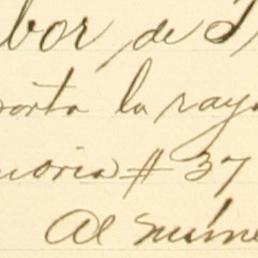 bor de
orta la raya
moria # 37
Al núme